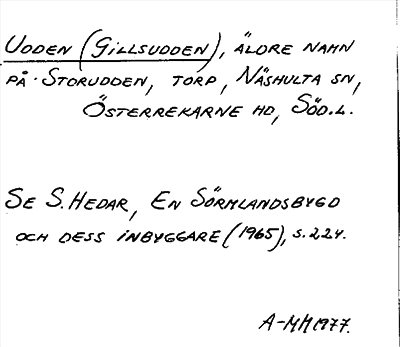 UDDEN (GILLSUDDEN), ÄLDRE NAMN
PÅ STORUDDEN, TORP, NÄSHULTA SN,
ÖSTERREKARNE HD, SÖD.L.
SE S. HEDAR, EN SÖRMLANDSBYGD
OCH DESS INBYGGARE (1965), S. 224.
A-MH 1977.